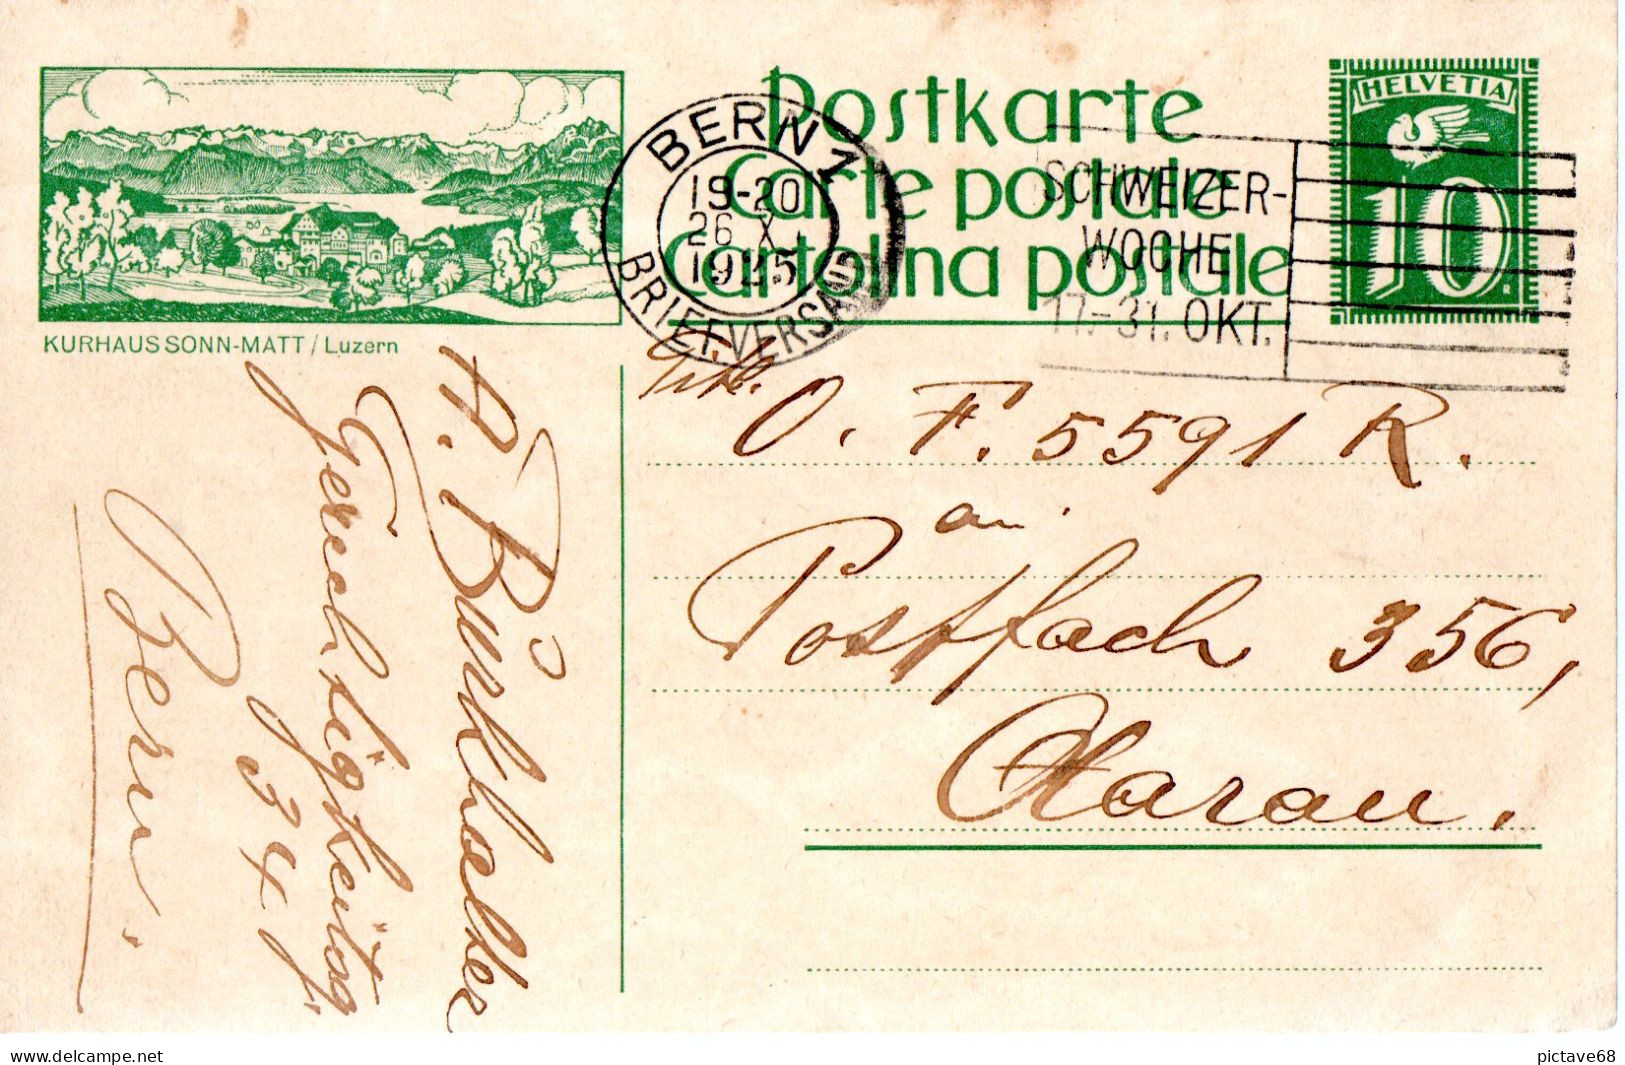 Postkarte
Carte postale
Cartolina postale
HELVETIA
10
BERN 1
19-20
26 X
1925
BRIEFVERSAND
SCHWEIZER-
WOCHE
17.-31. OKT.
KURHAUS SONN-MATT / Luzern
O. F. 5591 R.
an
Postfach 356,
Aarau.
A. Bürkhalter
Gerechtigkeitsg
34,
Bern.
www.delcampe.net
pictave68